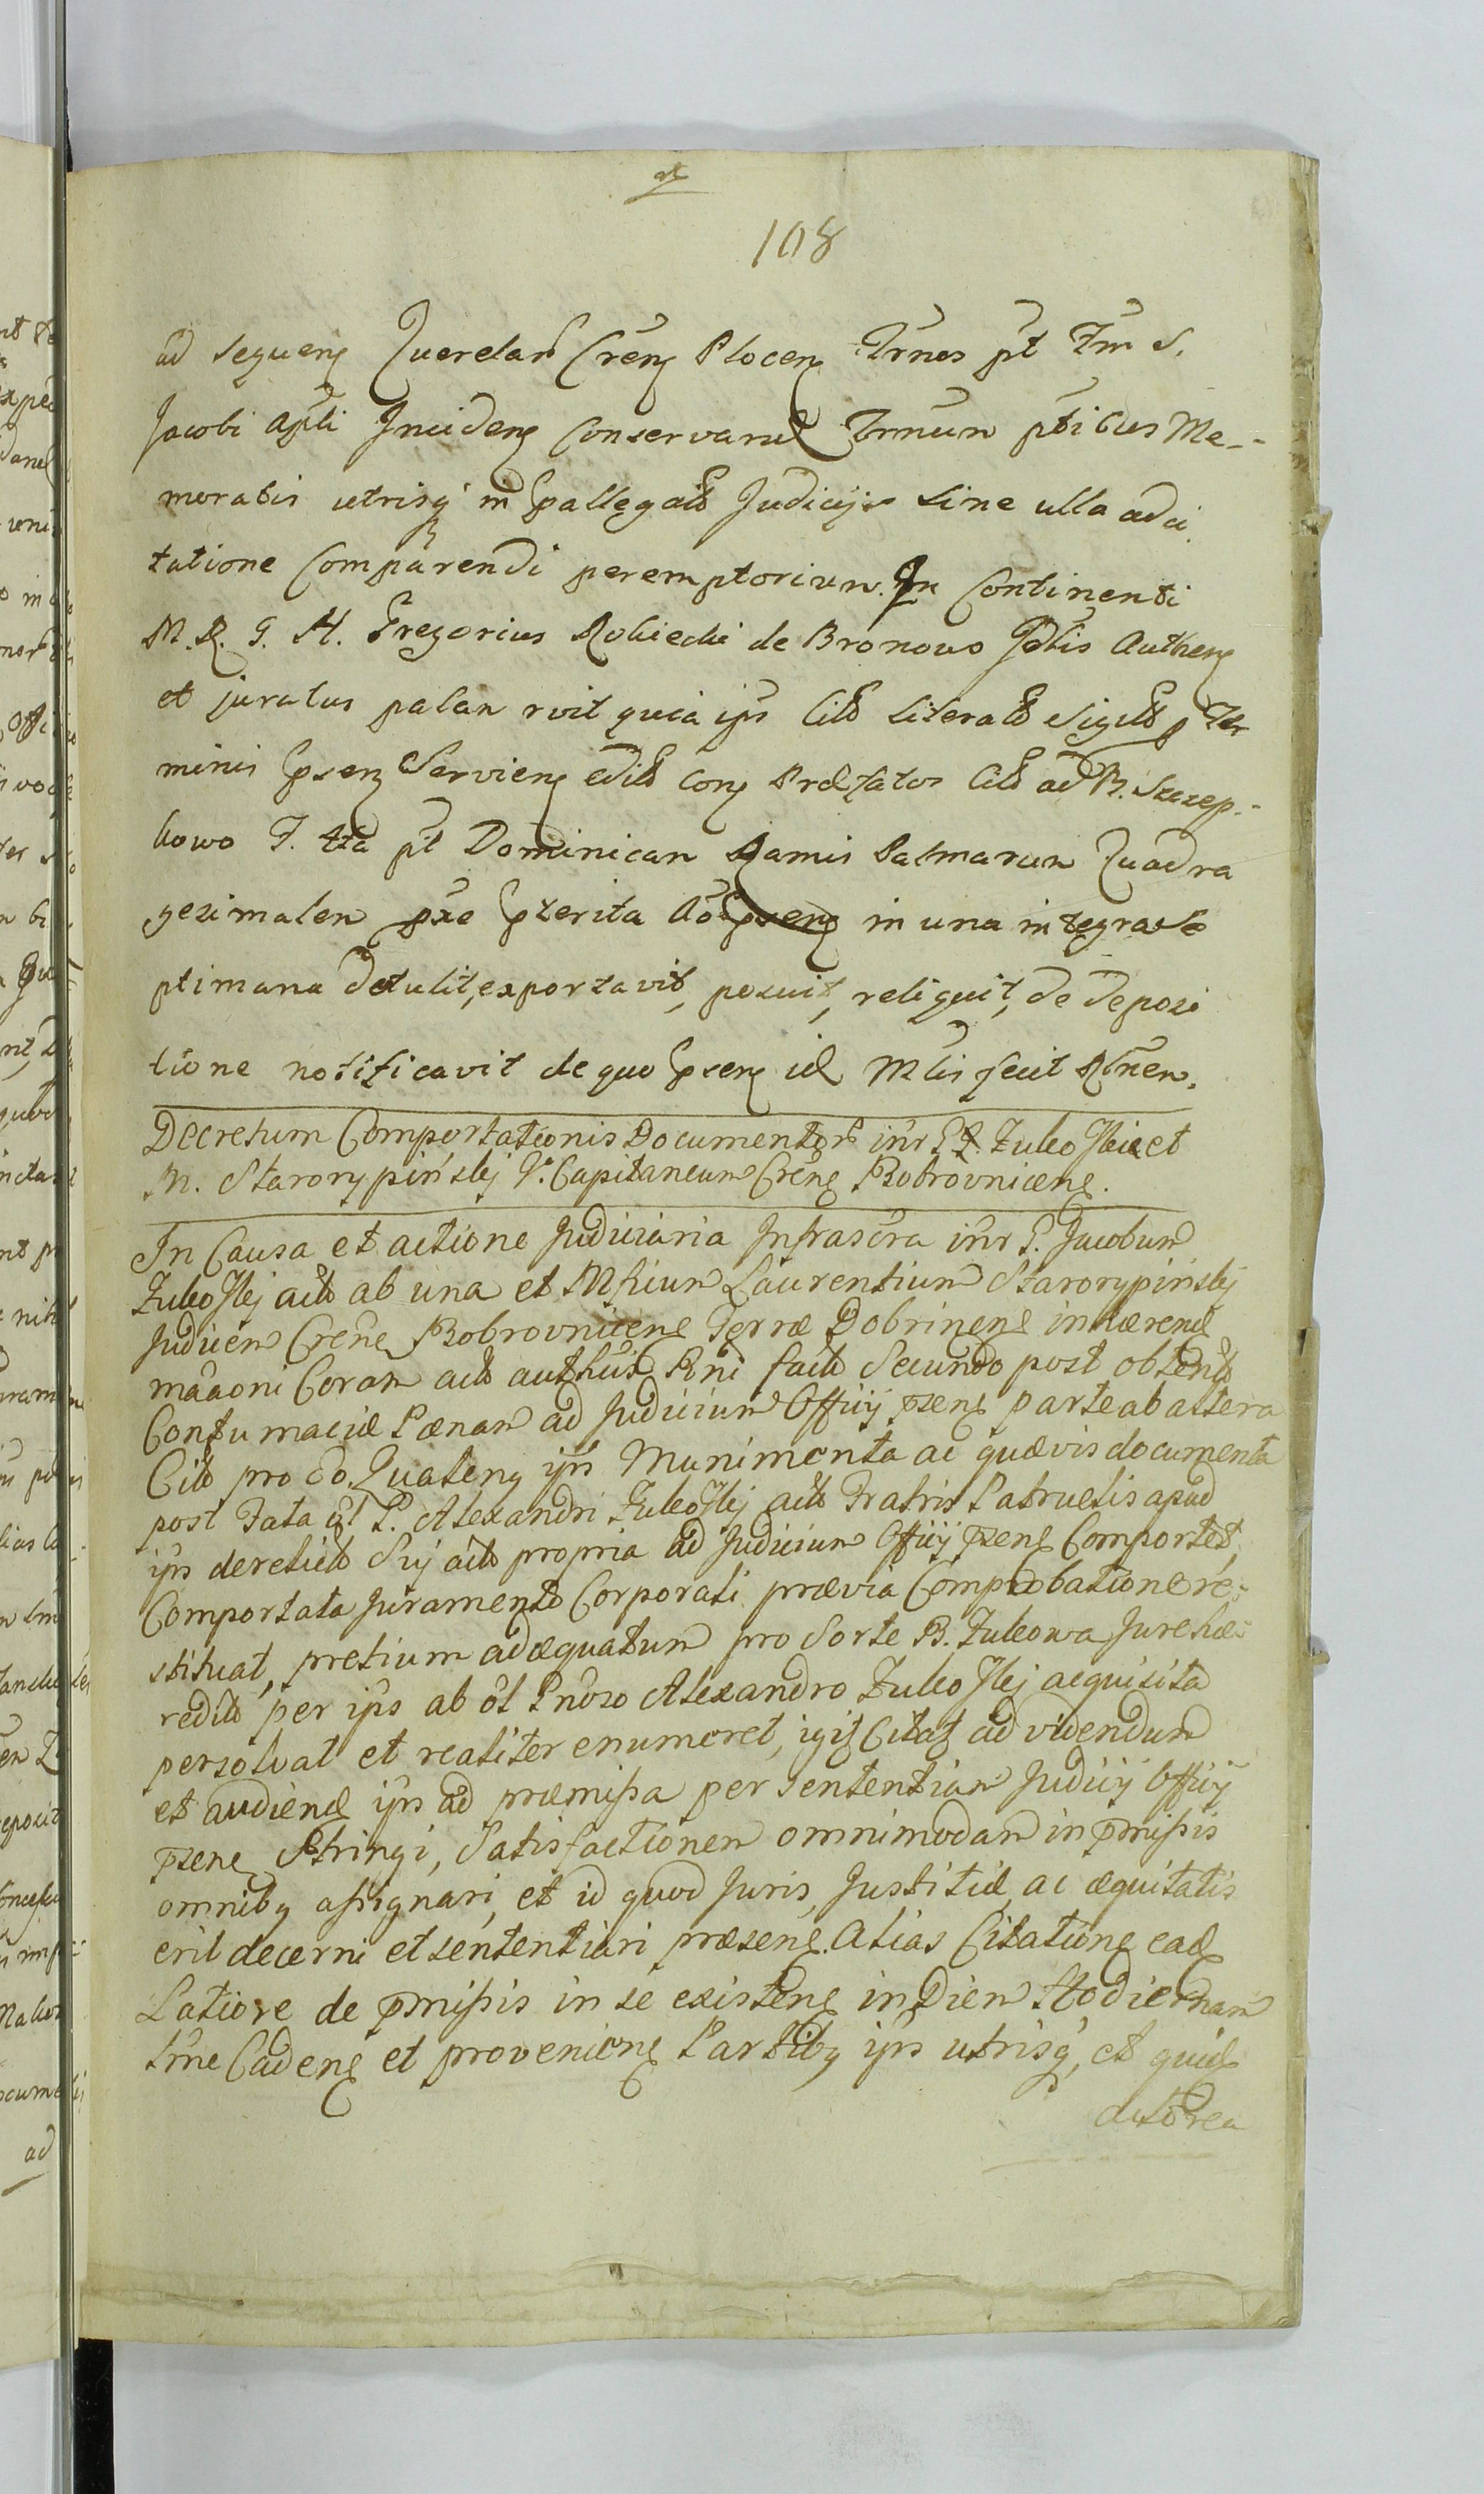 108
ad sequeng Querelar Creng Ploceng Trnos pt Fm S.
Jacobi Apli Incideng Conservand Trnum ptibus Me-
moratis utrisq in pallegatis Judicijs sine ulla adci
tatione Comparendi peremptorium. In Continenti
M. R. G. H. Gregorius Rokicki de Bronowo Gtlis Autheng
et juratus palam rvit quia ips litt literales Sigill p Ter
minis pseng Servieng edit Prætatos litt ad B. Szczep-
kowo F. 4ta pt Dominicam Ramis Palmarum Quadra
gesimalem pxe pterita Ao pseng in una integra Se
ptimana detulit, exportavit, posuit, reliquit, de deposi
tione notificavit de quo pseng id Mlis fecit Rlnem.
Decretum Comportationis Documentor inr GG. Zuko Skie et
M. Starorypinskj V. Capitaneum Creng Bobrovniceng.
In Causa et actione Judiciaria Infrascra inr G. Jacobum
Zuko Skj actt ab una et Mficum Laurentium Starorypinskj
Judicem Creng Bobrovniceng Terræ Dobrineng inhærend
Coram actt Rni factt Secundo post obtent
Contumaciæ Pænam ad Judicium Officij pseng parte ab altera
Citt pro eo. Quateng ips Munimenta ac quævis documenta
post Fata ol G. Alexandri Zuko Skj actt Fratris Patruelis apud
ips derelictt Suj actt propria ad Judicium Officij pseng Comportet,
Comportata Juramento Corporali prævia Comprobatione re-
stituat, pretium adæquatum pro Sorte B. Zukowa Jure hæ-
redit per ips ab ol Gnoso Alexandro Zuko Skj acquisita
persolvat et realiter enumeret, igit Citat ad videndum
et audiend ips ad præmissa per sententiam Judicij Officij
pseng Stringi, Satisfactionem omnimodam in pmissis
omnibg assignari, et id quod Juris, Justitiæ ac æquitatis
erit decerni et sententiari præseng. Alias Citationg ead
Latiore de pmissis in se existeng in Diem Hodiernam
trne Cadeng et provenieng Partibg ips utrisq, et quid